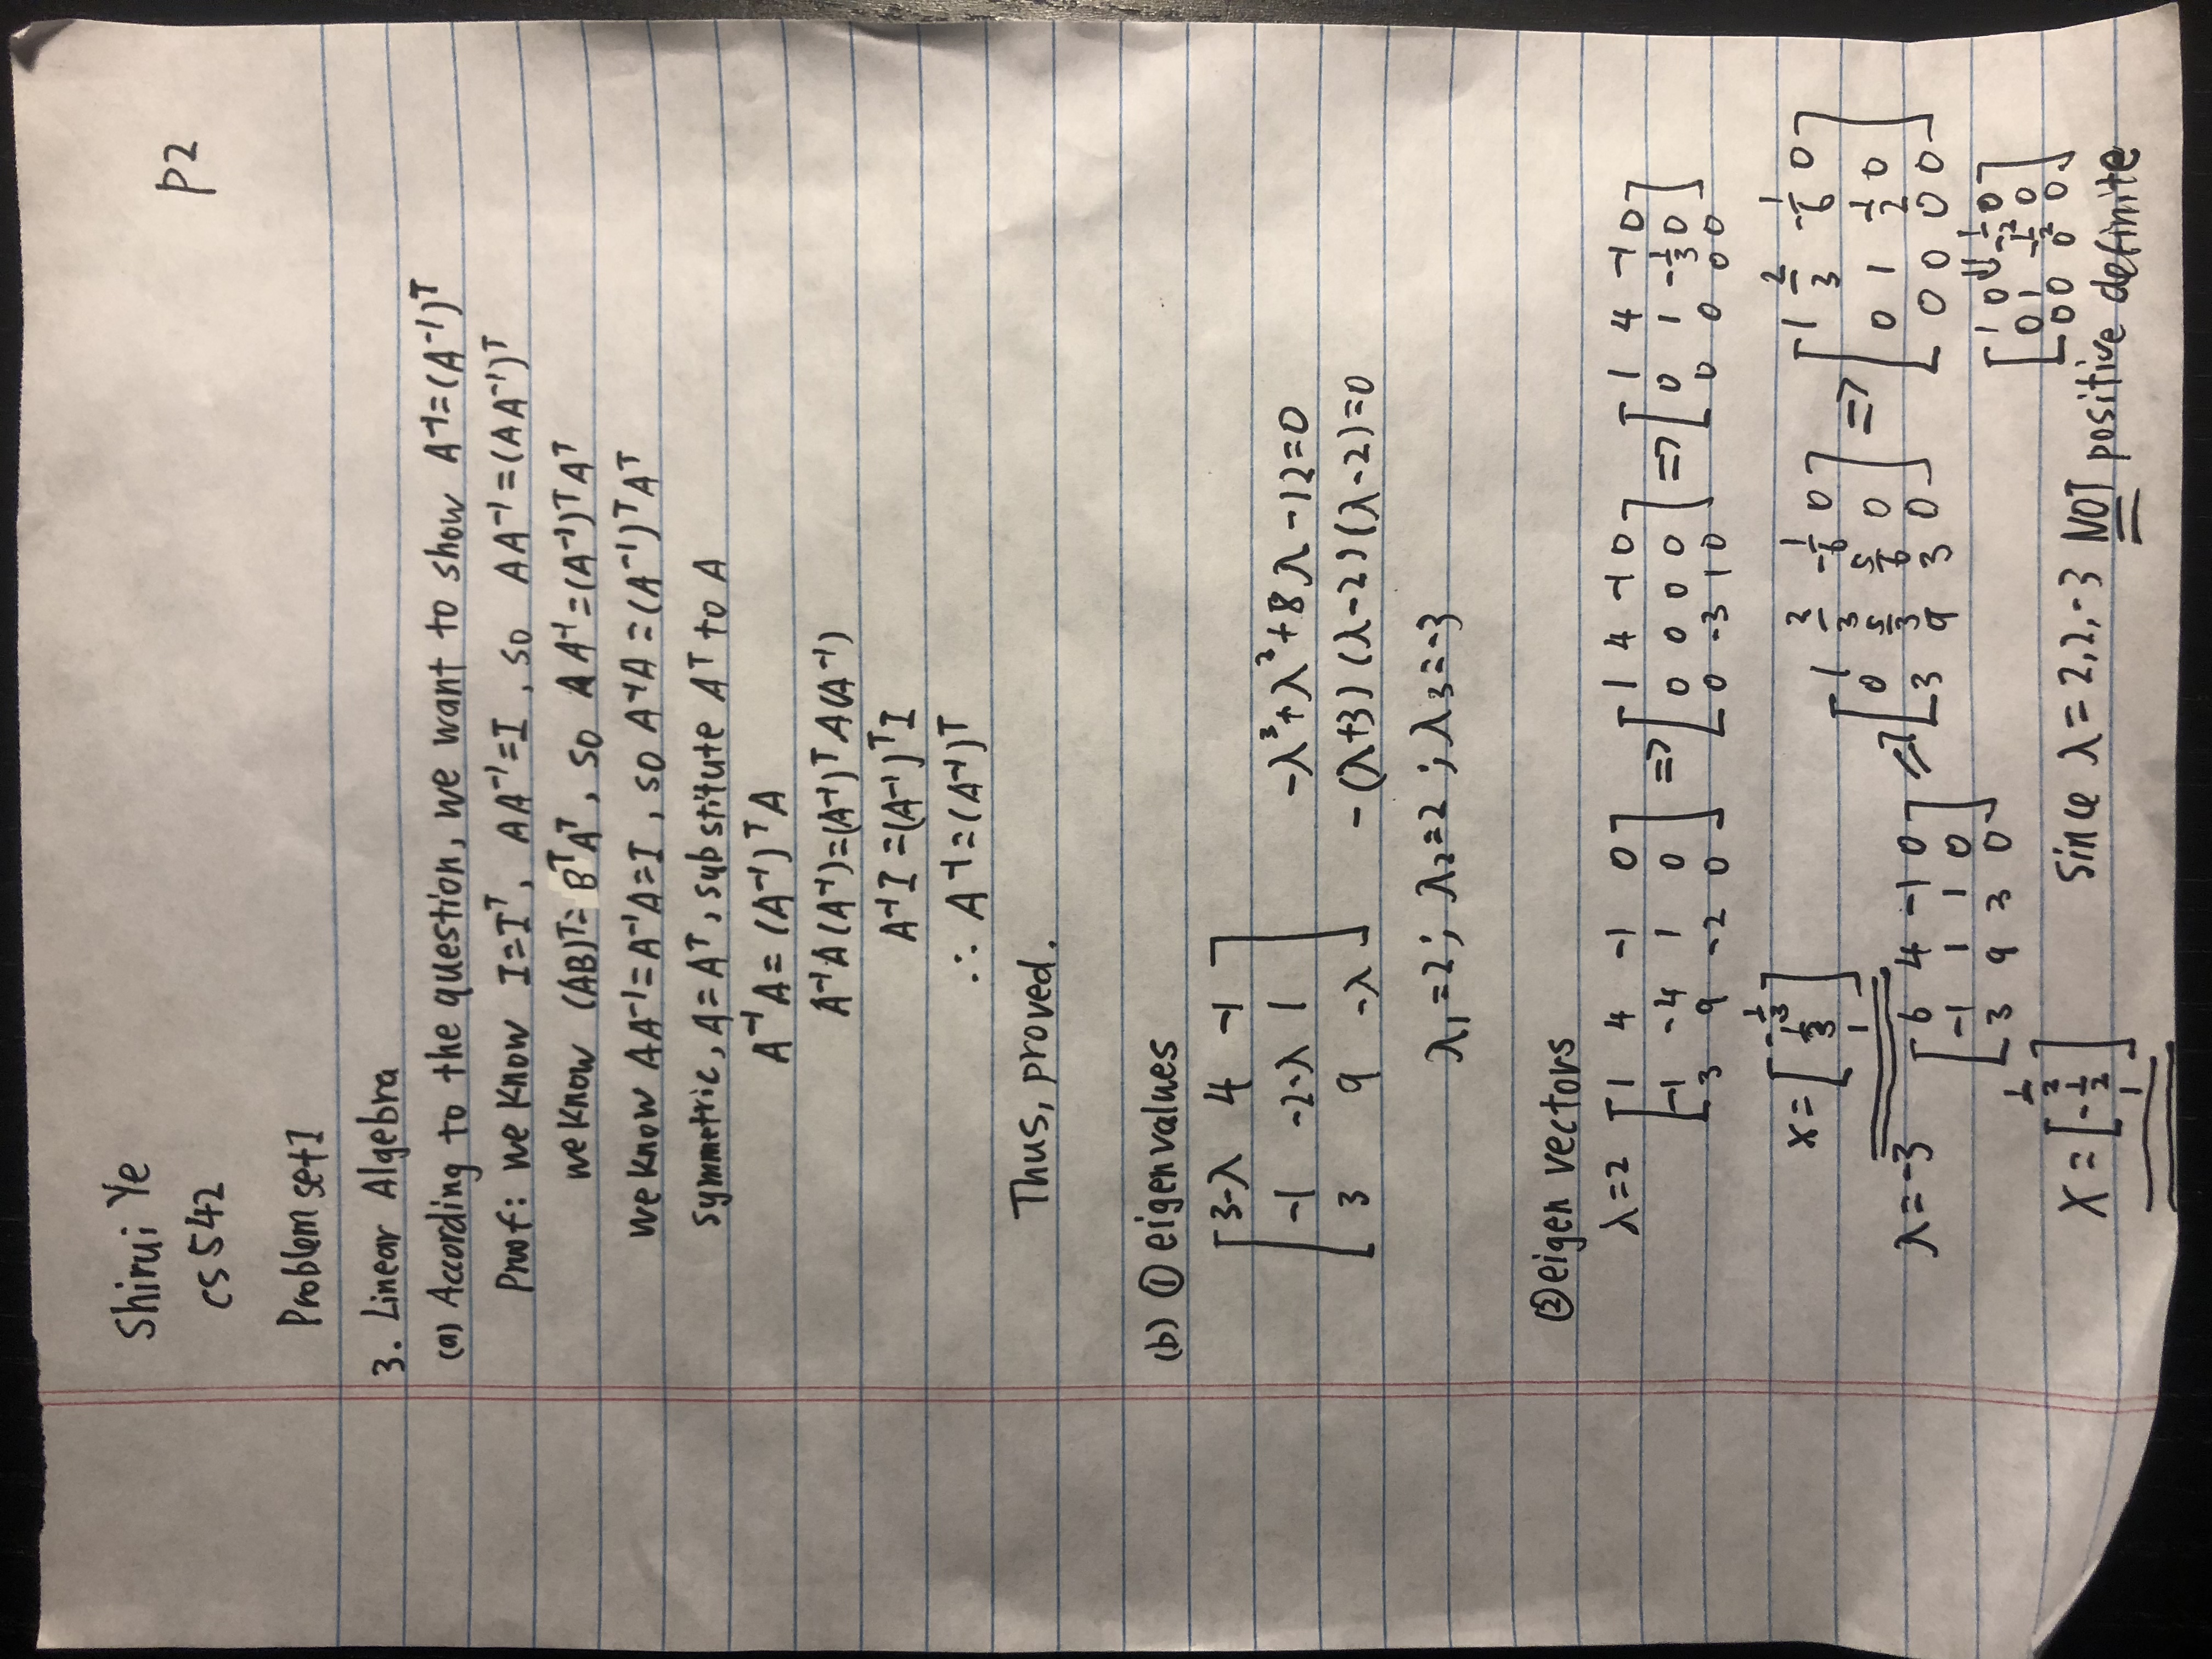 Shirui Ye
CS 542
P2
Problem set1
3. Linear Algebra
(a) According to the question, we want to show A⁻¹=(A⁻¹)ᵀ
Proof: we know I=Iᵀ, AA⁻¹=I, so AA⁻¹=(AA⁻¹)ᵀ
we know (AB)ᵀ= BᵀAᵀ, so AA⁻¹=(A⁻¹)ᵀAᵀ
we know AA⁻¹=A⁻¹A=I, so A⁻¹A=(A⁻¹)ᵀAᵀ
symmetric, A=Aᵀ, substitute Aᵀ to A
A⁻¹A=(A⁻¹)ᵀA
A⁻¹A(A⁻¹)=(A⁻¹)ᵀA(A⁻¹)
A⁻¹I=(A⁻¹)ᵀI
∴ A⁻¹=(A⁻¹)ᵀ
Thus, proved.
(b) ① eigenvalues
3-λ 4 -1
-1 -2-λ 1
3 9 -λ
-λ³+λ²+8λ-12=0
-(λ+3)(λ-2)(λ-2)=0
λ₁=2; λ₂=2; λ₃=-3
② eigen vectors
λ=2
1 4 -1 0
-1 -4 1 0
3 9 -2 0
=>
1 4 -1 0
0 0 0 0
0 -3 1 0
=>
1 4 -1 0
0 1 -1/3 0
0 0 0 0
x=
-1/3
1/3
1
λ=-3
6 4 -1 0
-1 1 1 0
3 9 3 0
=>
1 2/3 -1/6 0
0 5/3 5/6 0
3 9 3 0
=>
1 2/3 -1/6 0
0 1 1/2 0
0 0 0 0
⇓
1 0 -1/2 0
0 1 1/2 0
0 0 0 0
X=
1/2
-1/2
1
Since λ=2,2,-3 NOT positive definite